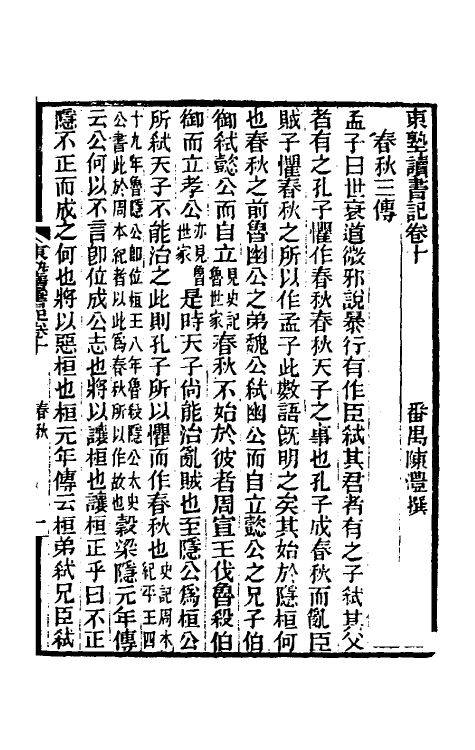 東塾讀書記卷十 番禺陳澧撰
春秋三傳
孟子曰世衰道微邪說暴行有作臣弒其君者有之子弒其父
者有之孔子懼作春秋春秋天子之事也孔子成春秋而亂臣
賊子懼春秋之所以作孟子此數語旣明之矣其始於隱桓何
也春秋之前魯幽公之弟魏公弒幽公而自立懿公之兄子伯
御弒懿公而自立見史記魯世家春秋不始於彼者周宣王伐魯殺伯
御而立孝公亦見魯世家是時天子尙能治亂賊也至隱公爲桓公
所弒天子不能治之此則孔子所以懼而作春秋也史記周本紀平王四
十九年魯隱公卽位桓王八年魯殺隱公太史公書此於周本紀者以此爲春秋所以作故也穀梁隱元年傳
云公何以不言卽位成公志也將以讓桓也讓桓正乎曰不正
隱不正而成之何也將以惡桓也桓元年傳云桓弟弒兄臣弒
東塾讀書記卷十 春秋 一